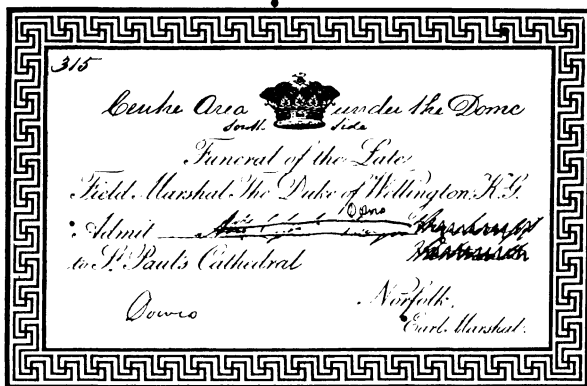 315
Centre Area under the Dome
South Side
Funeral of the Late
Field Marshal The Duke of Wellington, K.G.
Admit
to St. Paul's Cathedral
Norfolk,
Earl Marshal.